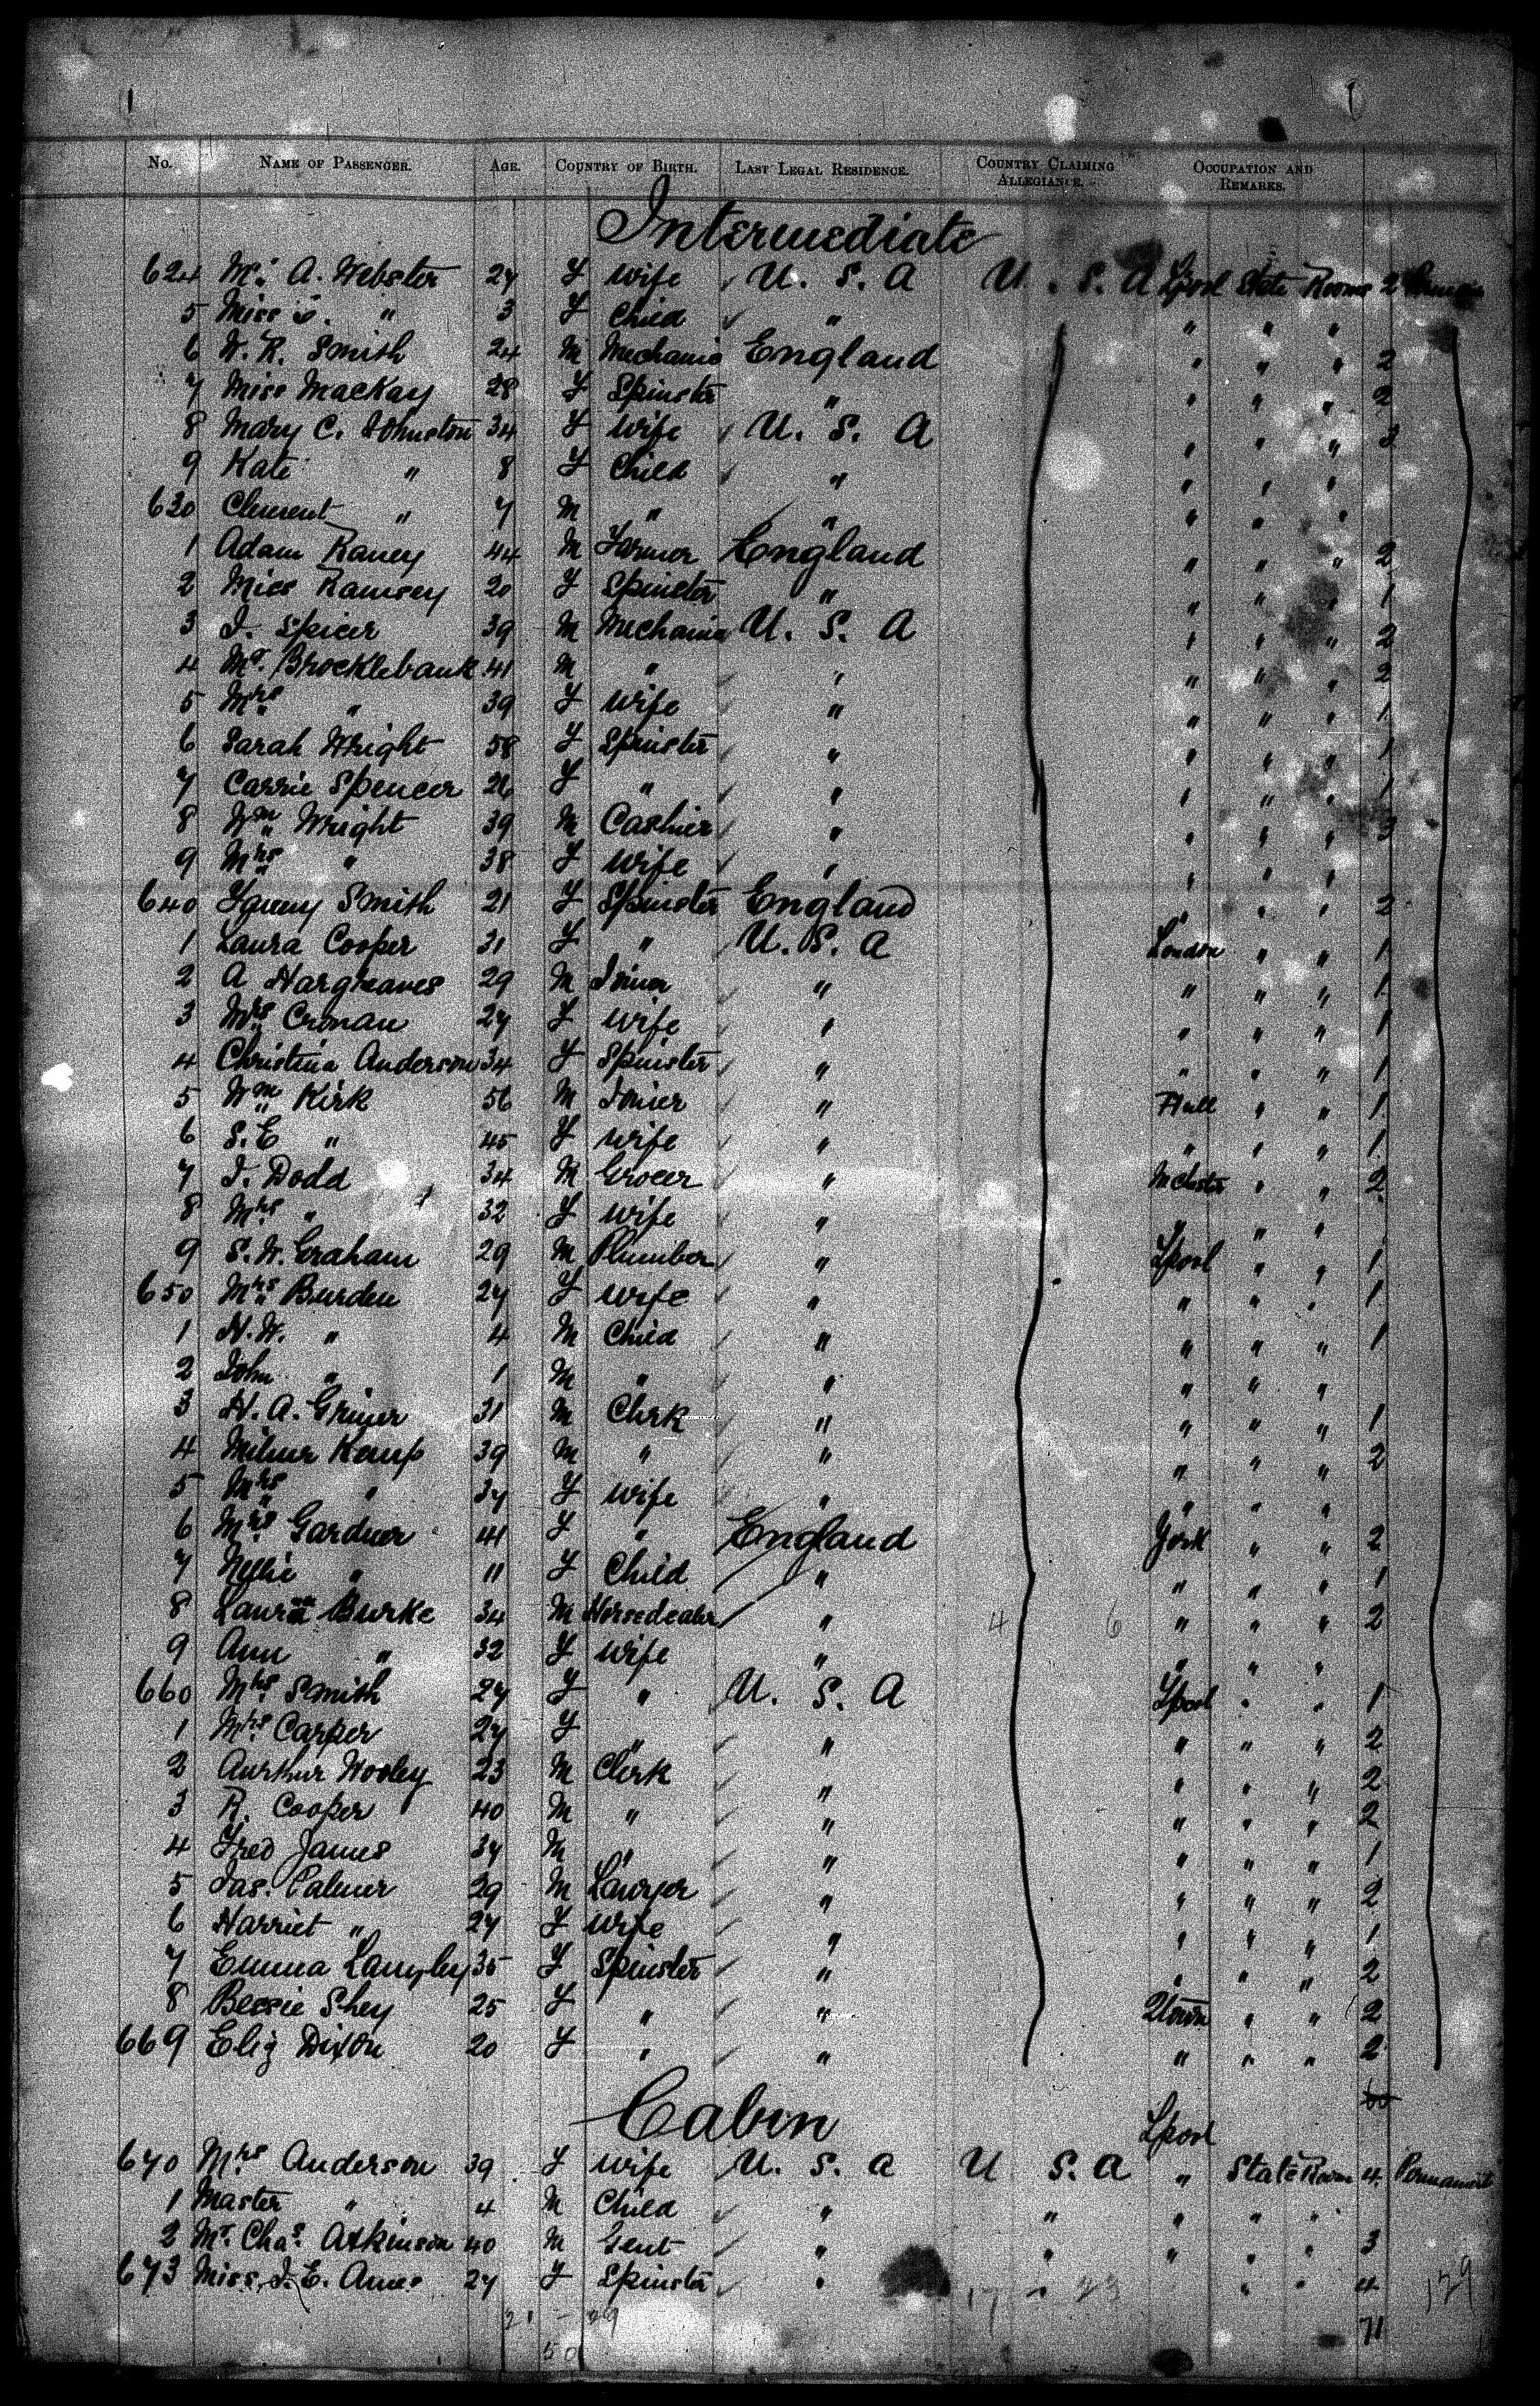 No. NAME OF PASSENGER. AGE. COUNTRY OF BIRTH. LAST LEGAL RESIDENCE. COUNTRY CLAIMING ALLEGIANCE. OCCUPATION AND REMARKS.
Intermediate
624 Mrs A. Webster 27 F wife U. S. A U. S. A Lpool State Room 2
5 Miss " 3 F Child " " " "
6 W. R. Smith 24 M Mechanic England " " " 2
7 Miss MacKay 28 F Spinster " " " " 2
8 Mary C. Johnston 34 F wife U. S. A " " " 3
9 Kate " 8 F Child " " " "
630 Clement " 7 M " " " " "
1 Adam Raney 44 M Farmer England " " " 2
2 Miss Ramsey 20 F Spinster " " " " 1
3 J. Spicer 39 M Mechanic U. S. A " " " 2
4 Mr. Brocklebank 41 M " " " " " 2
5 Mrs " 39 F wife " " " " 1
6 Sarah Wright 58 F Spinster " " " " 1
7 Carrie Spencer 26 F " " " " " 1
8 Wm Wright 39 M Cashier " " " " 3
9 Mrs " 38 F wife " " " "
640 Fanny Smith 21 F Spinster England " " " 2
1 Laura Cooper 31 F " U. S. A London " " 1
2 A Hargreaves 29 M Joiner " " " " 1
3 Mrs Cronan 27 F wife " " " " 1
4 Christina Anderson 34 F Spinster " " " " 1
5 Wm Kirk 56 M Joiner " Hull " " 1
6 S. E " 45 F wife " " " " 1
7 J. Dodd 34 M Grocer " Mchstr " " 2
8 Mrs " 32 F wife " " " "
9 S. W. Graham 29 M Plumber " Lpool " " 1
650 Mrs Burden 27 F wife " " " " 1
1 H. W. " 4 M Child " " " " 1
2 John " 1 M " " " " "
3 H. A. Griner 31 M Clerk " " " " 1
4 Milner Kemp 39 M " " " " " 2
5 Mrs " 37 F wife " " " "
6 Mrs Gardner 41 F " England York " " 2
7 Nellie " 11 F Child " " " " 1
8 Burke 34 M Horsedealer " 4 6 " " " 2
9 Ann " 32 F wife " " " "
660 Mrs. Smith 27 F " U. S. A Lpool " " 1
1 Mrs. Carper 27 F " " " " " 2
2 Aurthur Wooley 23 M Clerk " " " " 2
3 R. Cooper 40 M " " " " " 2
4 Fred James 37 M " " " " " 1
5 Jas. Palmer 29 M Lawyer " " " " 2
6 Harriet " 27 F wife " " " " 1
7 Emma Langley 35 F Spinster " " " " 2
8 Bessie Shey 25 F " " Qtown " " 2
669 Eliz Dixon 20 F " " " " " 2
Cabin Lpool
670 Mrs Anderson 39 F wife U. S. A U S. A " State Room 4 Permanent
1 Master " 4 M Child " " " " "
2 Mr. Chas. Atkinson 40 M Gent " " " " " 3
673 Miss J. E. Ames 27 F Spinster " " " 4
21 - 29
50
71